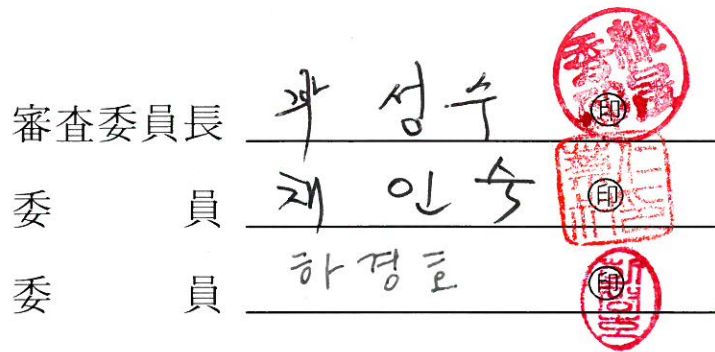 審査委員長 곽 성수 ㊞
委 員 채 인숙 ㊞
委 員 하경호 ㊞